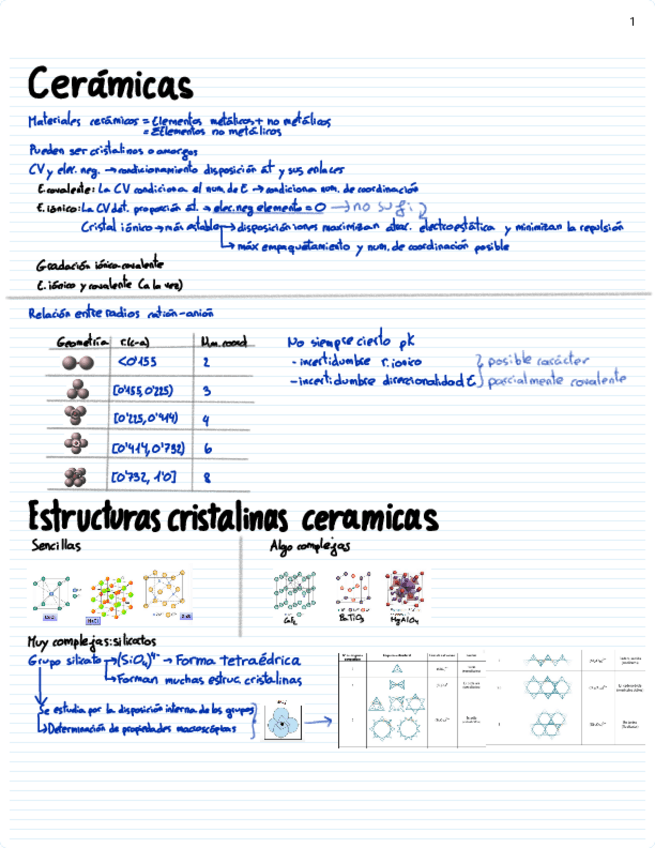 1
Cerámicas
Materiales cerámicos = Elementos metálicos + no metálicos
= ΣElementos no metálicos
Pueden ser cristalinos o amorfos
CV y elec. neg. → condicionamiento disposición át y sus enlaces
E. covalente: La CV condiciona el num. de E → condiciona num. de coordinación
E. iónico: La CV det. proporción át. → elec. neg elemento = 0 → no sufi
Cristal iónico → más estable → disposición iones maximizan atrac. electroestática y minimizan la repulsión
↳ máx empaquetamiento y num. de coordinación posible
Gradación iónico-covalente
E. iónico y covalente (a la vez)
Relación entre radios catión-anión
Geometría r(c-a) Nm. coord
<0'155 2
[0'155, 0'225) 3
[0'225, 0'414) 4
[0'414, 0'732) 6
[0'732, 1'0] 8
No siempre cierto pk
- incertidumbre r. ionico
- incertidumbre direcionalidad E
} posible carácter
parcialmente covalente
Estructuras cristalinas ceramicas
Sencillas
Algo complejas
NaCl
CaF₂
BaTiO₃
MgAlO₄
Muy complejas: silicatos
Grupo silicato → (SiO₄)⁴⁻ → Forma tetraédrica
↳ Forman muchas estruc. cristalinas
Se estudia por la disposición interna de los grupos
↳ Determinación de propiedades macroscópicas